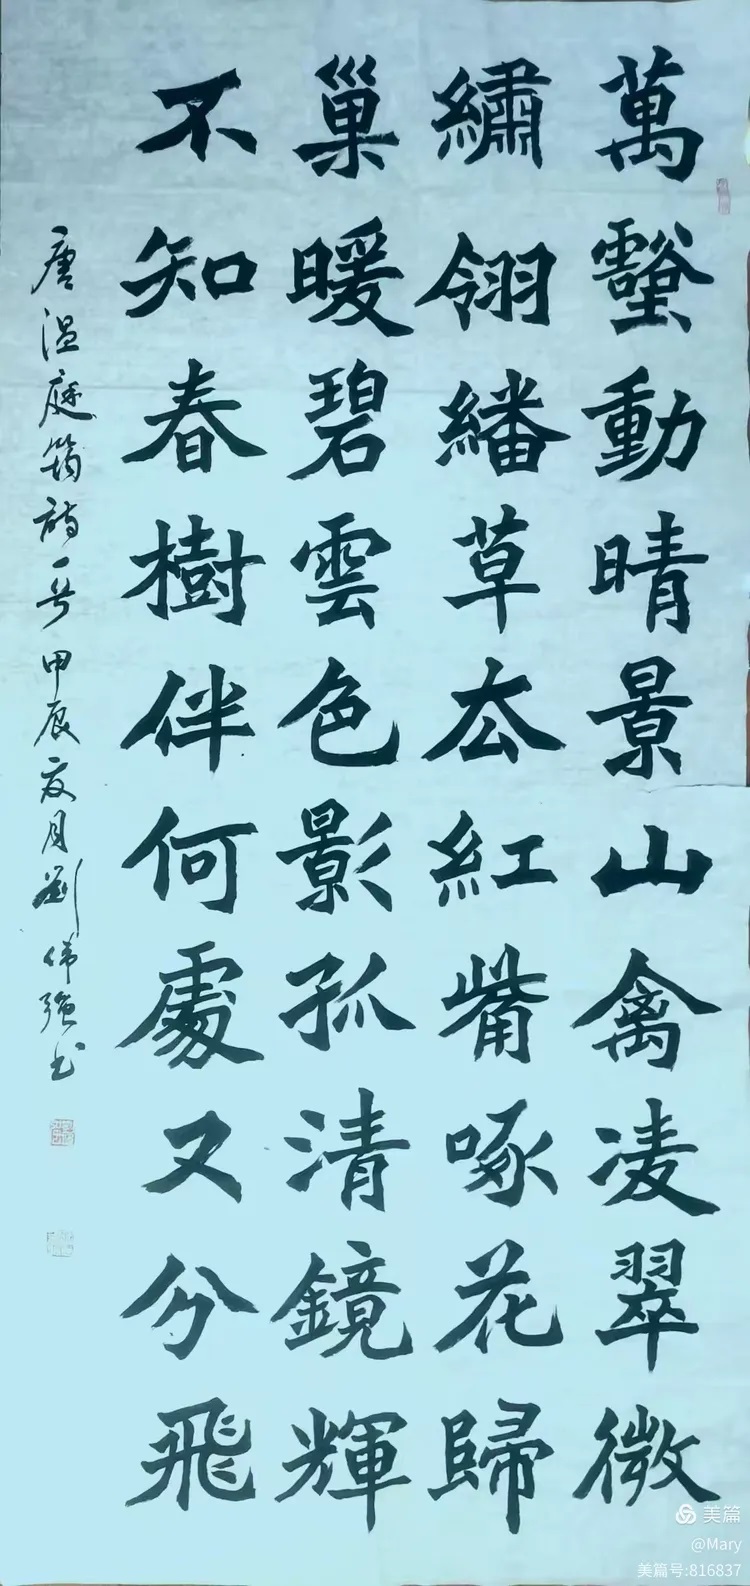 萬壑動晴景山禽凌翠微
繡翎繙草厺紅觜啄花歸
巢暖碧雲色影孤清鏡輝
不知春樹伴何處又分飛
唐温庭筠詩一首甲辰夏月劉偉强书
美篇
@Mary
美篇号:816837